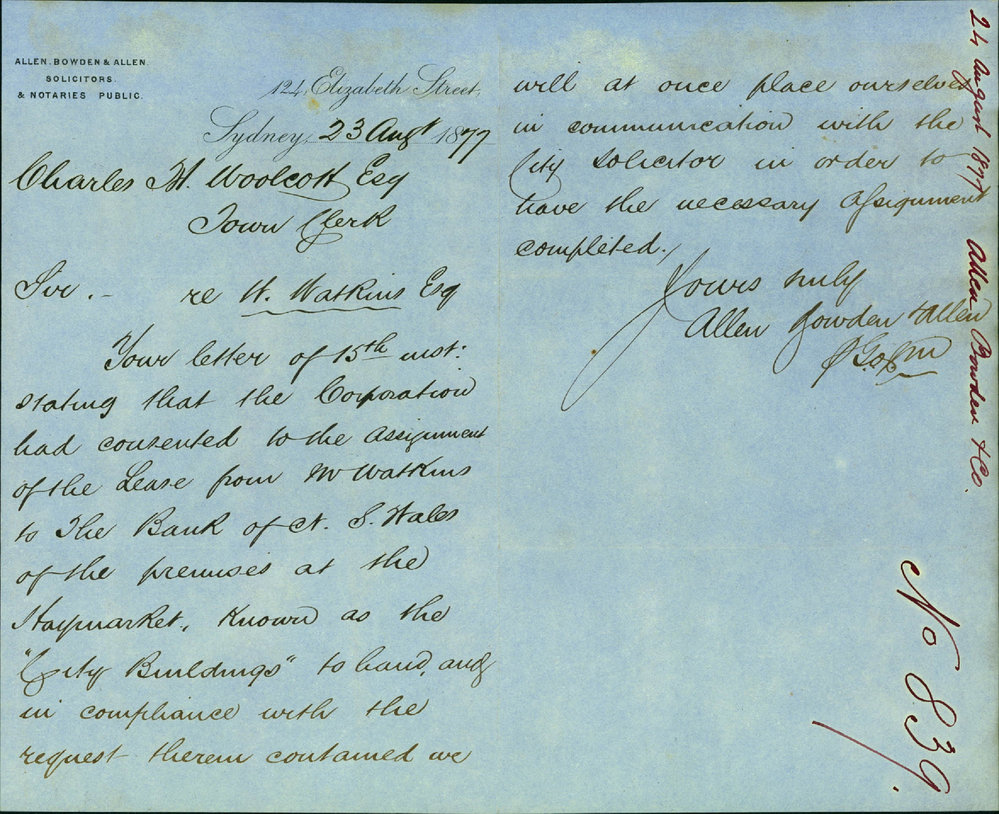 ALLEN. BOWDEN & ALLEN
SOLICITORS.
& NOTARIES PUBLIC.
124, Elizabeth Street,
Sydney, 23 Augt 1877
Charles H. Woolcott Esq
Town Clerk
Sir. - re W. Watkins Esq
Your letter of 15th inst:
stating that the Corporation
had consented to the Assignment
of the Lease from Mr Watkins
to The Bank of N. S. Wales
of the premises at the
Haymarket, Known as the
"City Buildings" to hand, and
in compliance with the
request therein contained we
will at once place ourselves
in communication with the
City Solicitor in order to
have the necessary Assignment
completed.
Yours truly
Allen Bowden & Allen
24 August 1877 Allen Bowden & Co.
No 839.